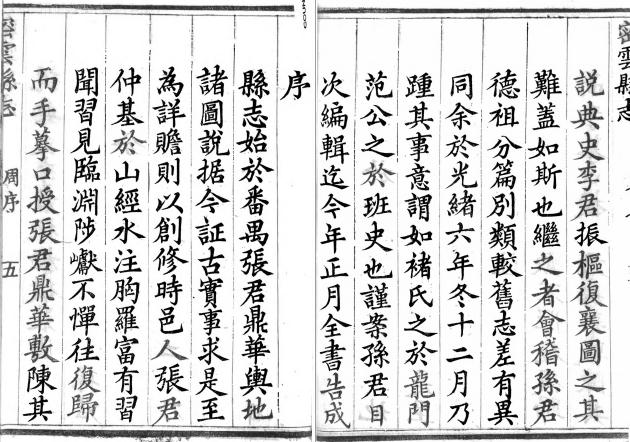 序
縣志始於番禺張君鼎華輿地
諸圖說据今証古實事求是至
為詳贍則以創修時邑人張君
仲基於山經水注胸羅富有習
聞習見臨淵陟巘不憚往復歸
而手摹口授張君鼎華敷陳其
密雲縣志
周序
五
密雲縣志
説典史李君振樞復襄圖之其
難蓋如斯也繼之者會稽孫君
德祖分篇別類較舊志差有異
同余於光緒六年冬十二月乃
踵其事意謂如褚氏之於龍門
范公之於班史也謹案孫君目
次編輯迄今年正月全書告成